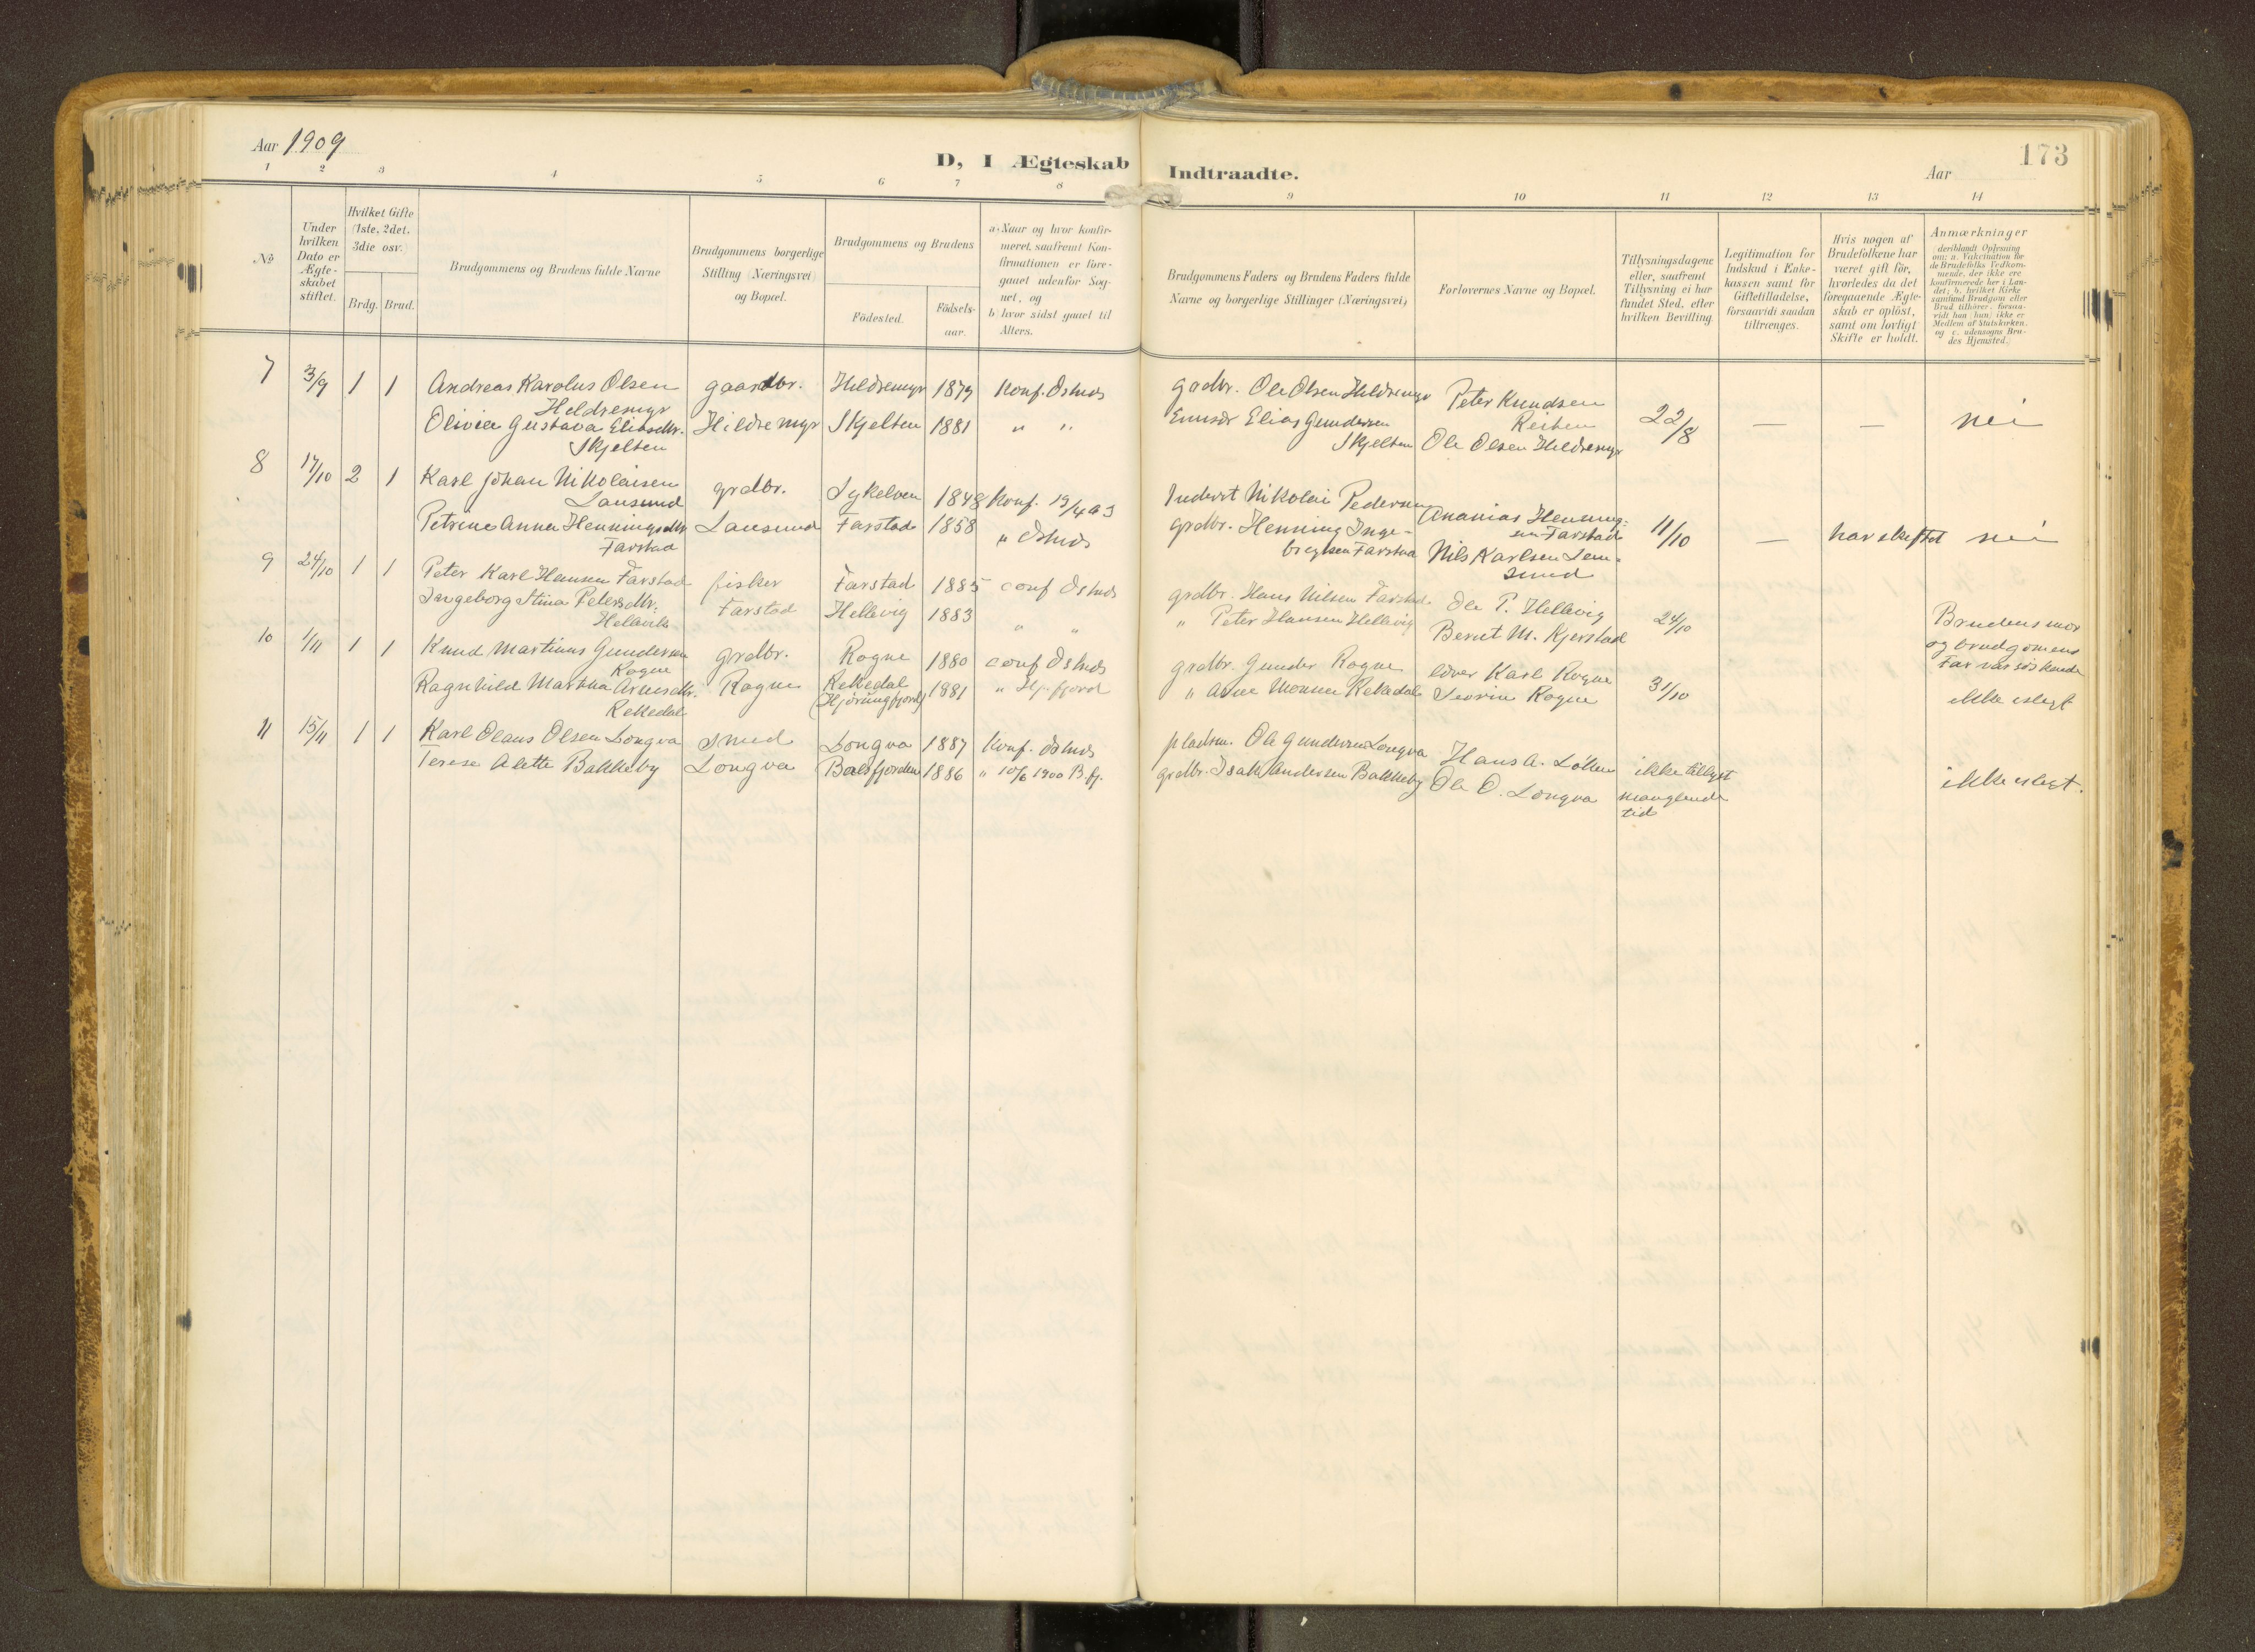 Aar 1909
D, I Ægteskab Indtraadte.
Aar
173
1 2 3 4 5 6 7 8 9 10 11 12 13 14
No
Under hvilken Dato er Ægteskabet stiftet.
Hvilket Gifte (1ste, 2det, 3die osv.)
Brdg. Brud.
Brudgommens og Brudens fulde Navne
Brudgommens borgerlige Stilling (Næringsvei) og Bopæl.
Brudgommens og Brudens
Fødested.
Fødsels-aar.
a) Naar og hvor konfir-
meret, saafremt Kon-
firmationen er fore-
gaaet udenfor Sog-
net, og
b) hvor sidst gaaet til
Alters.
Brudgommens Faders og Brudens Faders fulde
Navne og borgerlige Stillinger (Næringsvei)
Forlovernes Navne og Bopæl.
Tillysningsdagene
eller, saafremt
Tillysning ei har
fundet Sted, efter
hvilken Bevilling.
Legitimation for
Indskud i Enke-
kassen samt for
Giftetilladelse,
forsaavidt saadan
tiltrænges.
Hvis nogen af
Brudefolkene har
været gift før,
hvorledes da det
foregaaende Ægte-
skab er opløst,
samt om lovligt
Skifte er holdt.
Anmærkninger
(deriblandt Oplysning
om: a. Vakcination for
de Brudefolks Vedkom-
mende, der ikke ere
konfirmerede her i Lan-
det; b. hvilket Kirke
samfund Brudgom eller
Brud tilhører, forsaa-
vidt han (hun) ikke er
Medlem af Statskirken,
og c. udensogns Bru-
des Hjemsted.)
7 3/9 1 1 Andreas Karolus Olsen gaardbr. Hildremyr 1879 Konf. grdbr. Ole Olsen Hildremyr Peter Knudsen
Heldremyr Reiten
Olivia Gustava Eliasdtr. Hildremyr Skjelten 1881 " " Elias Gundersen 22/8 — — nei
Skjelten Skjelten Ole Olsen Heldremyr
8 17/10 2 1 Karl Johan Nikolaisen grdbr. 1848 Konf. Nikolai Pedersen Ananias Henning-
Lausund sen Farstad
Petrine Anna Henningsdtr Lausund Farstad 1858 " grdbr. Henning Inge- 11/10 — har skiftet nei
Farstad brigtsen Farstad Nils Karlsen Lau-
sund
9 24/10 1 1 Peter Karl Hansen Farstad fisker Farstad 1885 conf grdbr. Hans Nilsen Farstad Ole P. Hellevig
Ingeborg Stina Petersdtr. Farstad Hellevig 1883 " " " Peter Hansen Hellevig Bernt M. Kjerstad 24/10 Brudens mor
Hellevik og brudgomens
Far var søskende
10 1/11 1 1 Knud Martinus Gundersen grdbr. Rogne 1880 conf grdbr. Gunder Rogne Karl Rogne
Rogne
Ragnhild Martha Arnesdtr. Rogne Rekkedal 1881 " Hj. fjord " Arne Rekkedal Severin Rogne 31/10 ikke i slegt
Rekkedal (Hjörungfjord)
11 15/11 1 1 Karl Olaus Olsen Longva smed Longva 1887 Konf. pladsm. Ole Gundersen Longva Hans A. ikke tillyst
Terese Alette Bakkeby Longva Balsfjorden 1886 " 10/6 1900 B.fj. grdbr. Isak Andersen Bakkeby Ole O. Longva manglende ikke i slegt.
tid